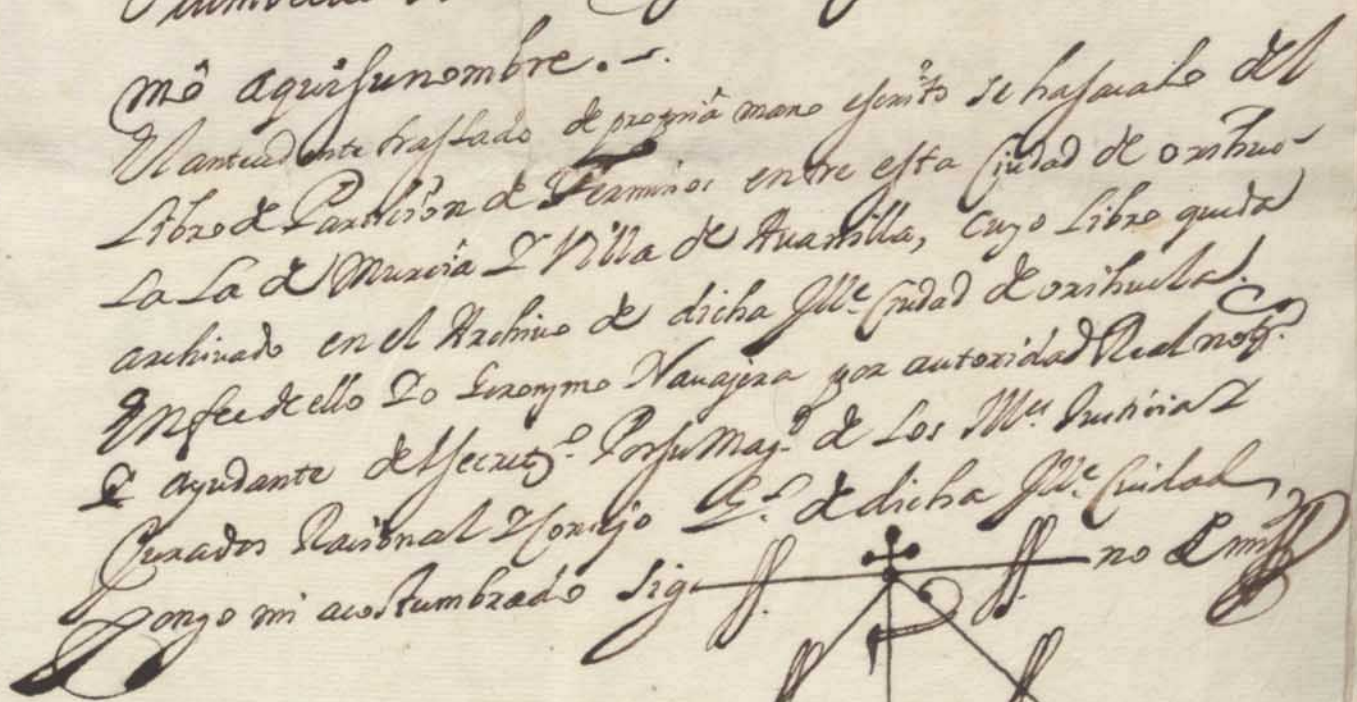 mô aqui su nombre. -.
El antecedente traslado de propria mano escrito se ha sacado del
Libro de Particion de Terminos entre esta Ciudad de orihue-
La La de Murcia Y Villa de Auanilla, Cuyo Libro queda
archivado en el Archivo de dicha Ille. Ciudad de orihuela.
En fee de ello Yo Geronymo Nauajera por autoridad Real notº.
Y ayudante del Secretº. Por su Magd. de Los Ills. Justicia Y
Jurados Racional Y Concejo Gl. de dicha Ille. Ciudad
Pongo mi acostumbrado Sig no &